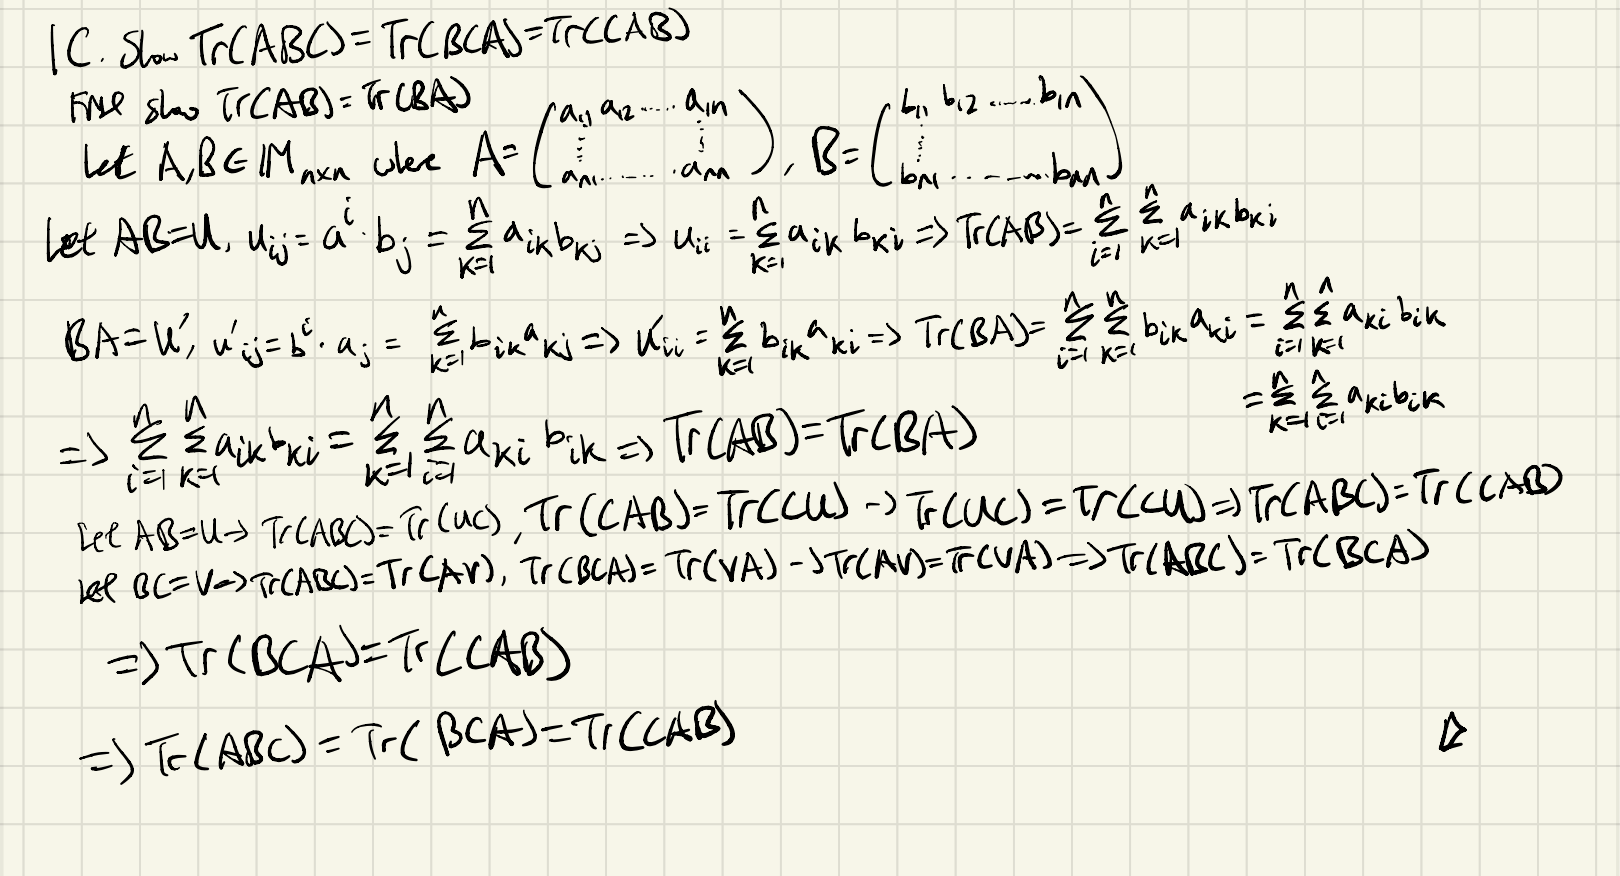 1C. Show Tr(ABC)=Tr(BCA)=Tr(CAB)
First show Tr(AB)=Tr(BA)
Let A,B∈M_{n×n} where A=(a_{11} a_{12} ..... a_{1n} ⋮ ⋮ a_{n1} ...... a_{nn}), B=(b_{11} b_{12} ...... b_{1n} ⋮ b_{n1} ...... b_{nn})
Let AB=U, u_{ij}=a^i·b_j = Σ_{k=1}^n a_{ik}b_{kj} => u_{ii} = Σ_{k=1}^n a_{ik} b_{ki} => Tr(AB)= Σ_{i=1}^n Σ_{k=1}^n a_{ik}b_{ki}
BA=U', u'_{ij}=b^i·a_j = Σ_{k=1}^n b_{ik}a_{kj} => u'_{ii} = Σ_{k=1}^n b_{ik}a_{ki} => Tr(BA)= Σ_{i=1}^n Σ_{k=1}^n b_{ik}a_{ki} = Σ_{i=1}^n Σ_{k=1}^n a_{ki}b_{ik}
= Σ_{k=1}^n Σ_{i=1}^n a_{ki}b_{ik}
=> Σ_{i=1}^n Σ_{k=1}^n a_{ik}b_{ki} = Σ_{k=1}^n Σ_{i=1}^n a_{ki} b_{ik} => Tr(AB)=Tr(BA)
Let AB=U -> Tr(ABC)=Tr(UC), Tr(CAB)=Tr(CU) -> Tr(UC)=Tr(CU) => Tr(ABC)=Tr(CAB)
Let BC=V -> Tr(ABC)=Tr(AV), Tr(BCA)=Tr(VA) -> Tr(AV)=Tr(VA) => Tr(ABC)=Tr(BCA)
=> Tr(BCA)=Tr(CAB)
=> Tr(ABC)=Tr(BCA)=Tr(CAB)